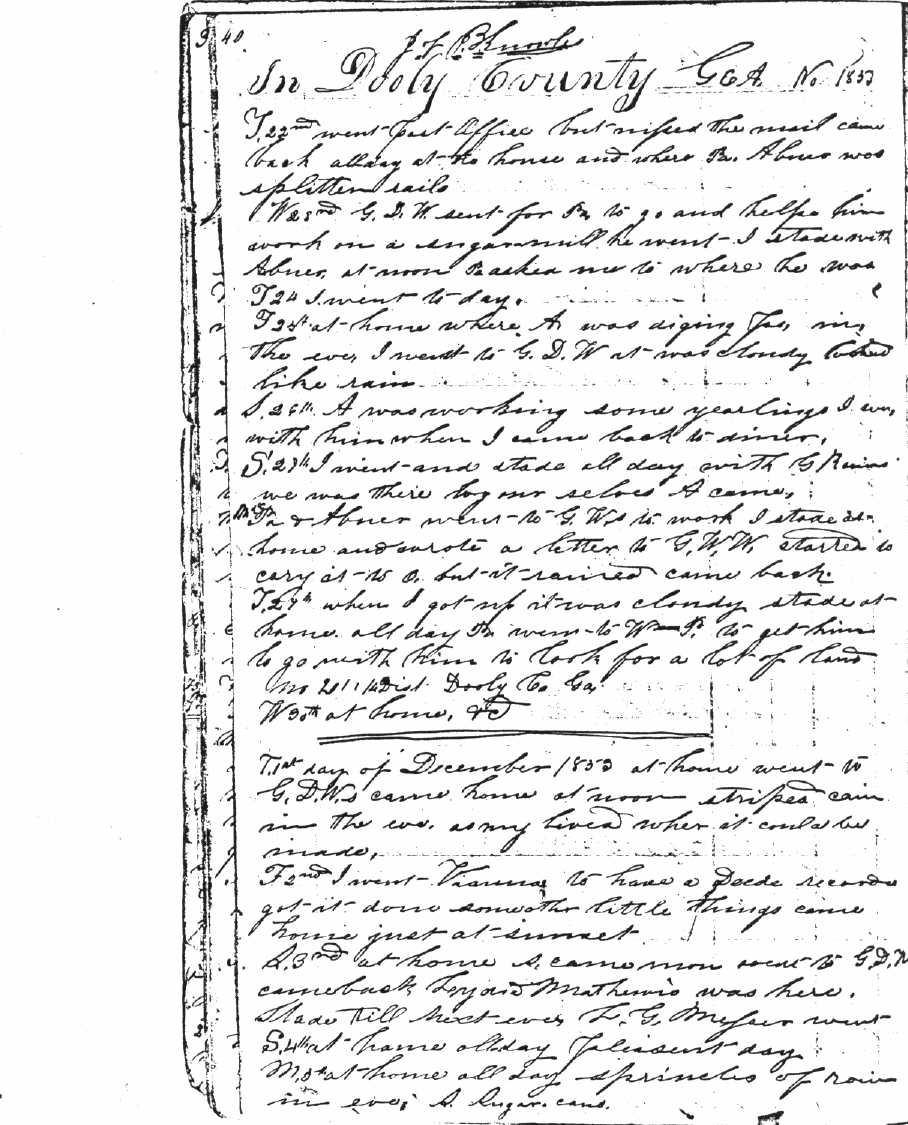 40
J F P. B. Knowls
In Dooly County GEA. No 1853
T. 22nd went Post Office but missed the mail came
back all day at the house and where Pa. Abner was
splitten rails
W 23rd G. D. W. sent for Pa to go and helpe him
work on a sugar mill he went I stade with
Abner, at noon Pa asked me to where he was
T 24 I went to day.
F 25th at home where A was diging in,
the eve, I went to G. D. W at was cloudy looked
like rain
S. 26th A was working some yearlings I was
with him when I came back to diner.
S. 27th I went and stade all day with G
we was there by our selves A came,
Pa & Abner went to G. W,s to work I stade at
home and wrote a letter to G. W. W. started to
cary it to O. but it rained came back.
T. 29th when I got up it was cloudy stade at
home all day Pa went to W P. to get him
to go with him to look for a lot of land
No 201 Dist Dooly Co Ga,
W 30th at home, &c
T. 1st day of December 1853 at home went to
G. D. W,s came home at noon striped cain
in the eve. as my lived wher it could be
made,
F 2nd I went Vianna to have a Deede record
got it done some other little things came
home just at sunset
S. 3rd at home A. came mon went to G. D. W
came back Mathewis was here.
Stade till next eve, F. G. Messer went
S. 4th at home all day pleasent day
M, 5th at home all day sprincles of rain
in eve; S. Sugar cane.